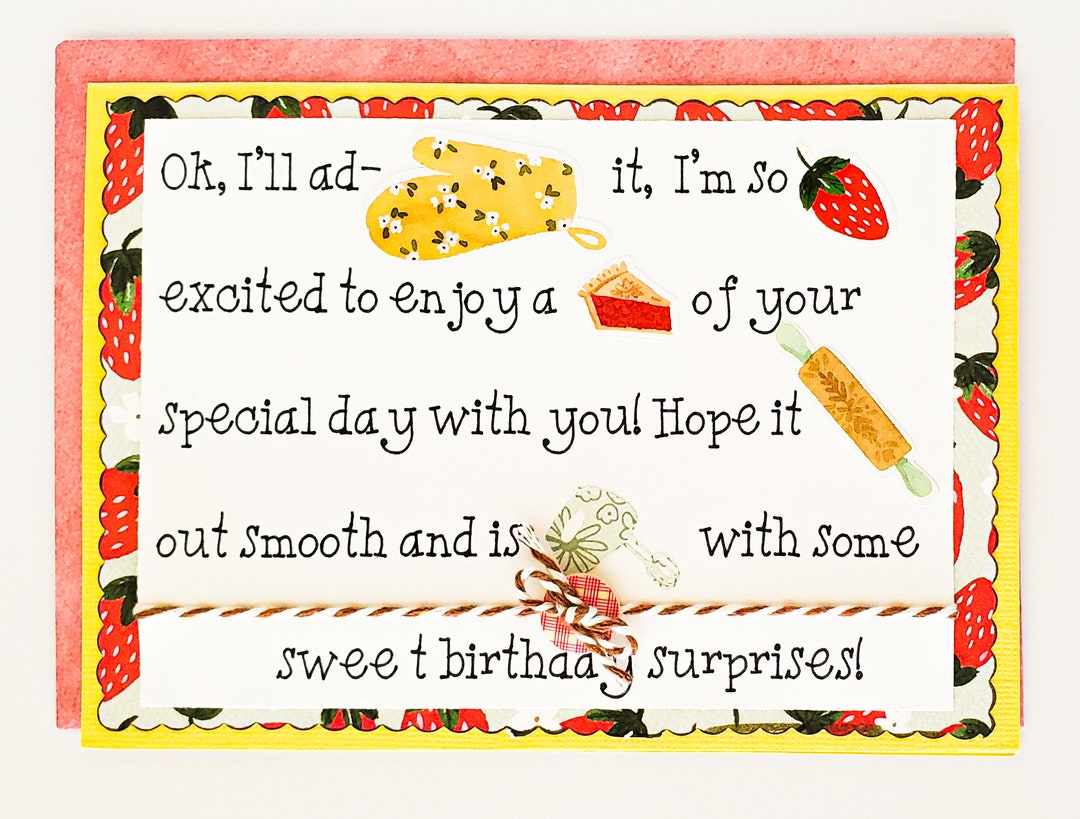 Ok, I'll ad- it, I'm so
excited to enjoy a of your
special day with you! Hope it
out smooth and is with some
sweet birthday surprises!